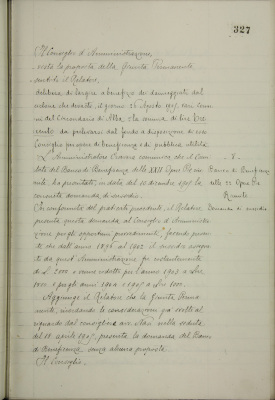 327
Il Consiglio d'Amministrazione,
vista la proposta della Giunta Permanente
udito il Relatore,
delibera di largire a beneficio dei danneggiati dal
ciclone che devastò, il giorno 26 Agosto 1907, vari Comuni
del Circondario di Alba, la somma di lire
da prelevarsi dal fondo a disposizione di esso
Consiglio per opere di beneficenza e di pubblica utilità
L'Amministratore comunica che il Comitato
8.
dei Banco di Beneficenza delle XXII Opere Pie
Banco di Beneficenza
ha presentato, in data del 10 dicembre 1907 la
delle 22 Opere Pie
consueta domanda di sussidio.
In conformità del precedente, il Relatore
Domanda di sussidio
presenta questa domanda al Consiglio d'Amministrazione
per gli opportuni provvedimenti, facendo presente
che dall'anno 1896 al 1902 il sussidio assegnato
da quest'Amministrazione fu
di L. 2000 e venne ridotto per l'anno 1903 a Lire
1000
Aggiunge il Relatore che la Giunta Permanente,
ricordando le considerazioni già svolte al
riguardo dal consigliere avv. nella seduta
del 18 aprile 1907, presenta la domanda del Banco
di Beneficenza senza alcuna proposta.
Il Consiglio,